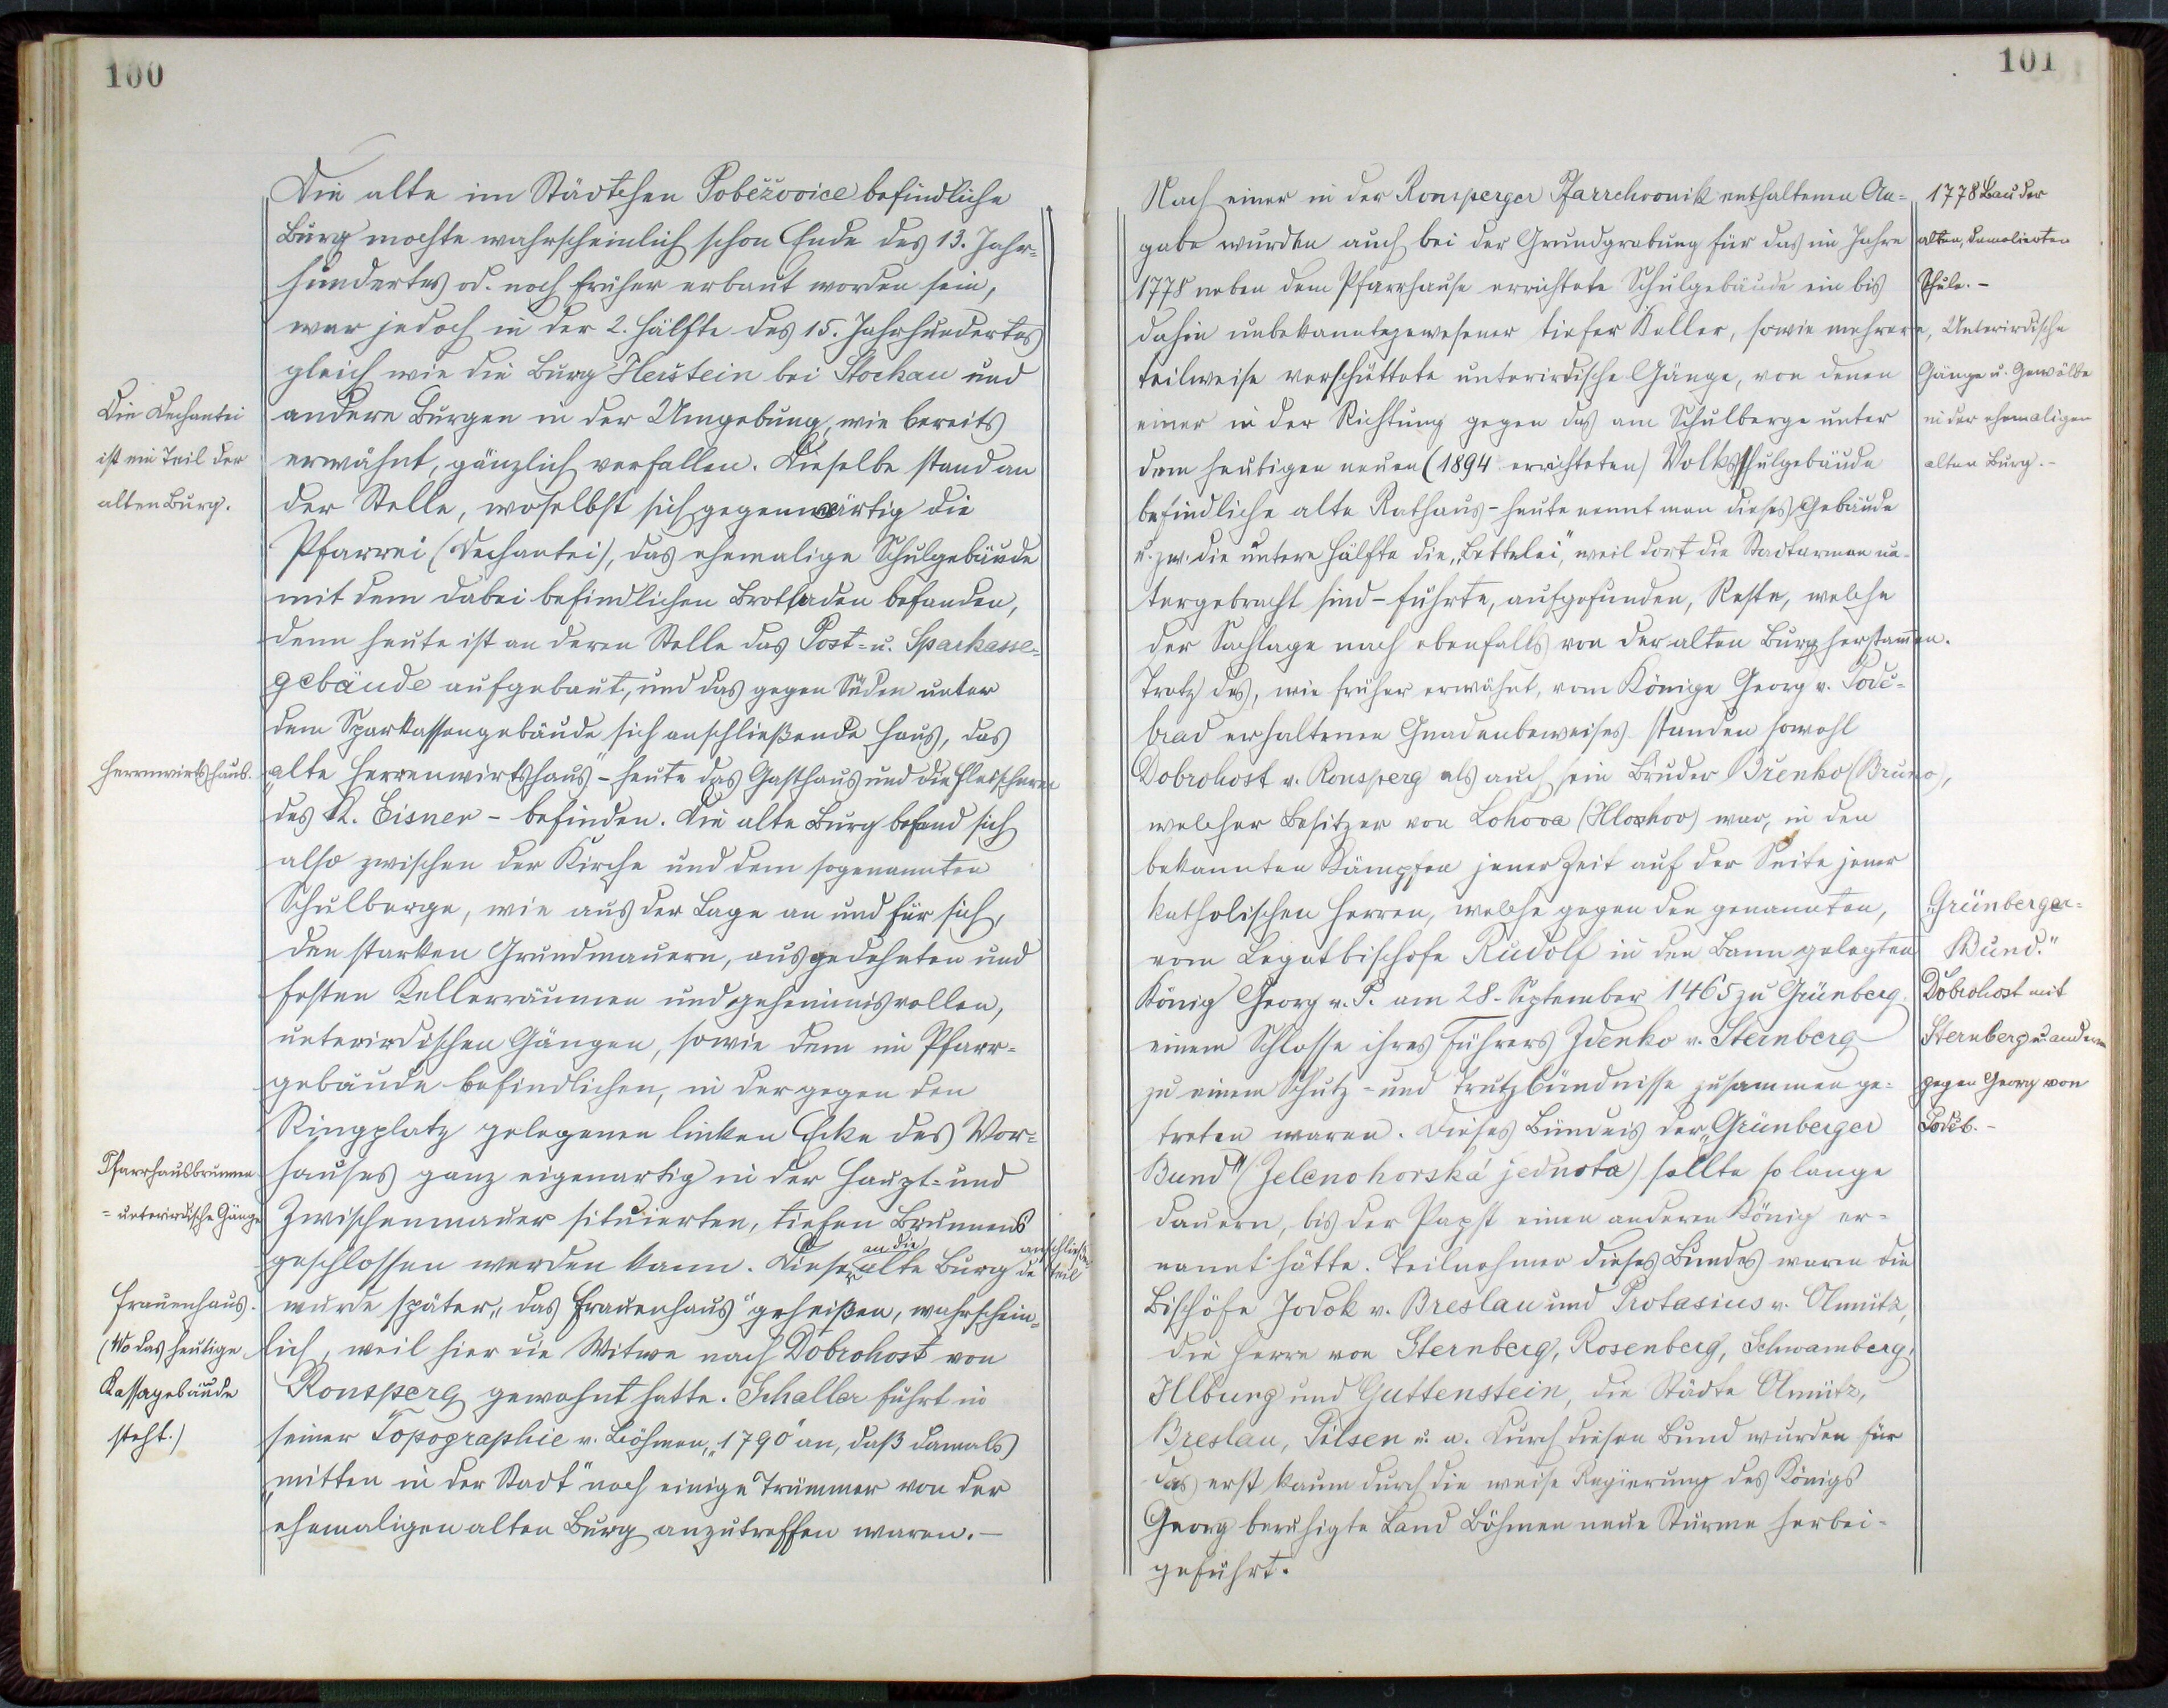 100
Die alte im Städtchen Poběžovice befindliche
Burg mochte wahrscheinlich schon Ende des 13. Jahr-
hundertes od. noch früher erbaut worden sein,
war jedoch in der 2. Hälfte des 15. Jahrhundertes
gleich wie die Burg Herstein bei Stockau und
andere Burgen in der Umgebung, wie bereits
erwähnt, gänzlich verfallen. Dieselbe stand an
der Stelle, woselbst sich gegenwärtig die
Pfarrei (Dechantei), das ehemalige Schulgebäude
mit dem dabei befindlichen Brotladen befanden,
denn heute ist an deren Stelle das Post- u. Sparkasse-
gebäude aufgebaut, und das gegen Süden unter
dem Sparkassengebäude sich anschließende Haus, das
„alte Herrenwirtshaus" - heute das Gasthaus und die Fleischerei
des K. Eisner - befinden. Die alte Burg befand sich
also zwischen der Kirche und dem sogenannten
Schulberge, wie aus der Lage an und für sich,
den starken Grundmauern, ausgedehnten und
festen Kellerräumen und geheimnisvollen,
unterirdischen Gängen, sowie dem im Pfarr-
gebäude befindlichen, in der gegen den
Ringplatz gelegenen linken Ecke des Vor-
hauses ganz eigenartig in der Haupt- und
Zwischenmauer situierten, tiefen Brunnens
geschlossen werden kann. Dieser an die alte Burg anschließende Teil
wurde später „das Frauenhaus" geheißen, wahrschein-
lich, weil hier die Witwe nach Dobrohost von
Ronsperg gewohnt hatte. Schaller führt in
seiner Topographie v. Böhmen „1790" an, daß damals
„mitten in der Stadt" noch einige Trümmer von der
ehemaligen alten Burg anzutreffen waren. -
Die Dechantei
ist ein Teil der
alten Burg.
Herrenwirtshaus.
Pfarrhausbrunnen
- unterirdische Gänge
Frauenhaus.
(Wo das heutige
Kassagebäude
steht.)
101
Nach einer in der Ronsperger Pfarrchronik enthaltenen An-
gabe wurden auch bei der Grundgrabung für das im Jahre
1778 neben dem Pfarrhause errichtete Schulgebäude ein bis
dahin unbekanntgewesener tiefer Keller, sowie mehrere,
teilweise verschüttete unterirdische Gänge, von denen
einer in der Richtung gegen das am Schulberge unter
dem heutigen neuen (1894 errichteten) Volksschulgebäude
befindliche alte Rathaus - heute nennt man dieses Gebäude
u. zw. die untere Hälfte die „Bettelei", weil dort die Stadtarmen un-
tergebracht sind - führte, aufgefunden, Reste, welche
der Sachlage nach ebenfalls von der alten Burg herstammen.
Trotz des, wie früher erwähnt, vom Könige Georg v. Podě-
brad erhaltenen Gnadenbeweises standen sowohl
Dobrohost v. Ronsperg als auch sein Bruder Břenko (Bruno),
welcher Besitzer von Lohova (Hlohov) war, in den
bekannten Kämpfen jener Zeit auf der Seite jener
katholischen Herren, welche gegen den genannten,
vom Legatbischofe Rudolf in den Bann gelegten
König Georg v. P. am 28. September 1465 zu Grünberg,
einem Schlosse ihres Führers Zdenko v. Sternberg
zu einem Schutz- und Trutzbündnisse zusammenge-
treten waren. Dieses Bündnis der „Grünberger
Bund" (Zelenohorská jednota) sollte solange
dauern, bis der Papst einen anderen König er-
nannt hätte. Teilnehmer dieses Bundes waren die
Bischöfe Jodok v. Breslau und Protasius v. Olmütz,
die Herrn von Sternberg, Rosenberg, Schwamberg,
Illburg und Guttenstein, die Städte Olmütz,
Breslau, Pilsen u. a. Durch diesen Bund wurden für
das erst kaum durch die weise Regierung des Königs
Georg beruhigte Land Böhmen neue Stürme herbei-
geführt.
1778 Bau der
alten, demolierten
Schule. -
Unterirdische
Gänge u. Gewölbe
in der ehemaligen
alten Burg. -
„Grünberger-
Bund."
Dobrohost mit
Sternberg u. anderen
gegen Georg von
Poděb. -